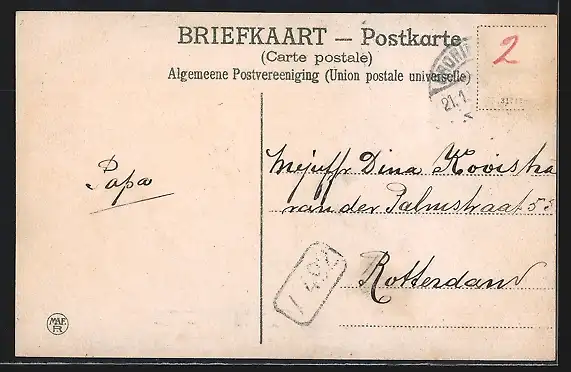 BRIEFKAART — Postkarte
(Carte postale)
Algemeene Postvereeniging (Union postale universelle)
2
21.1
Papa
Mejuffr Dina Kooistra
van der Palmstraat 53
Rotterdam
MAF
R